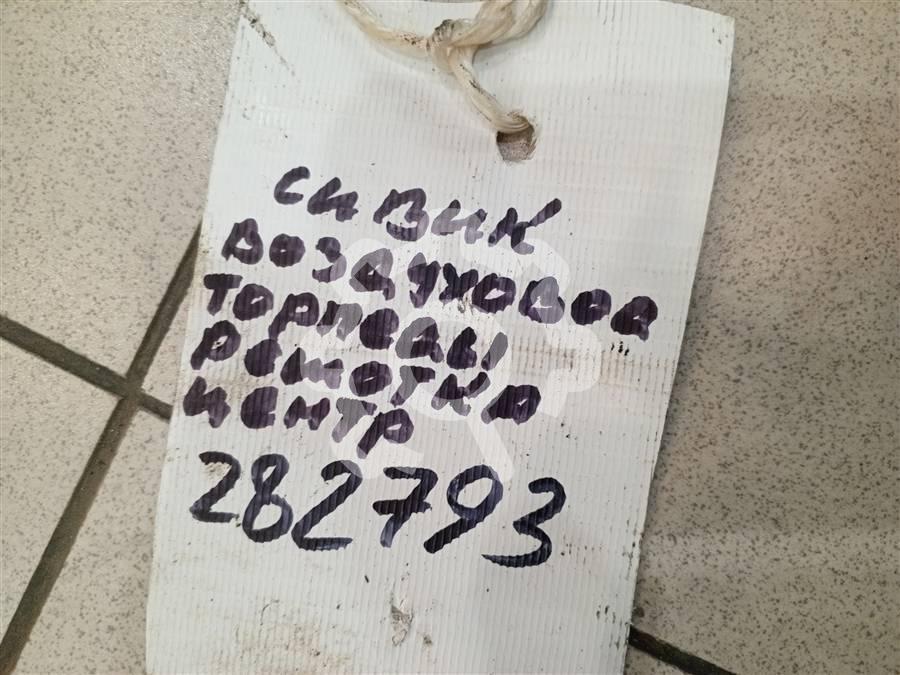 СИВИК
ВОЗДУХОВОД
ТОРПЕДЫ
РЕШОТКА
ЦЕНТР
282793